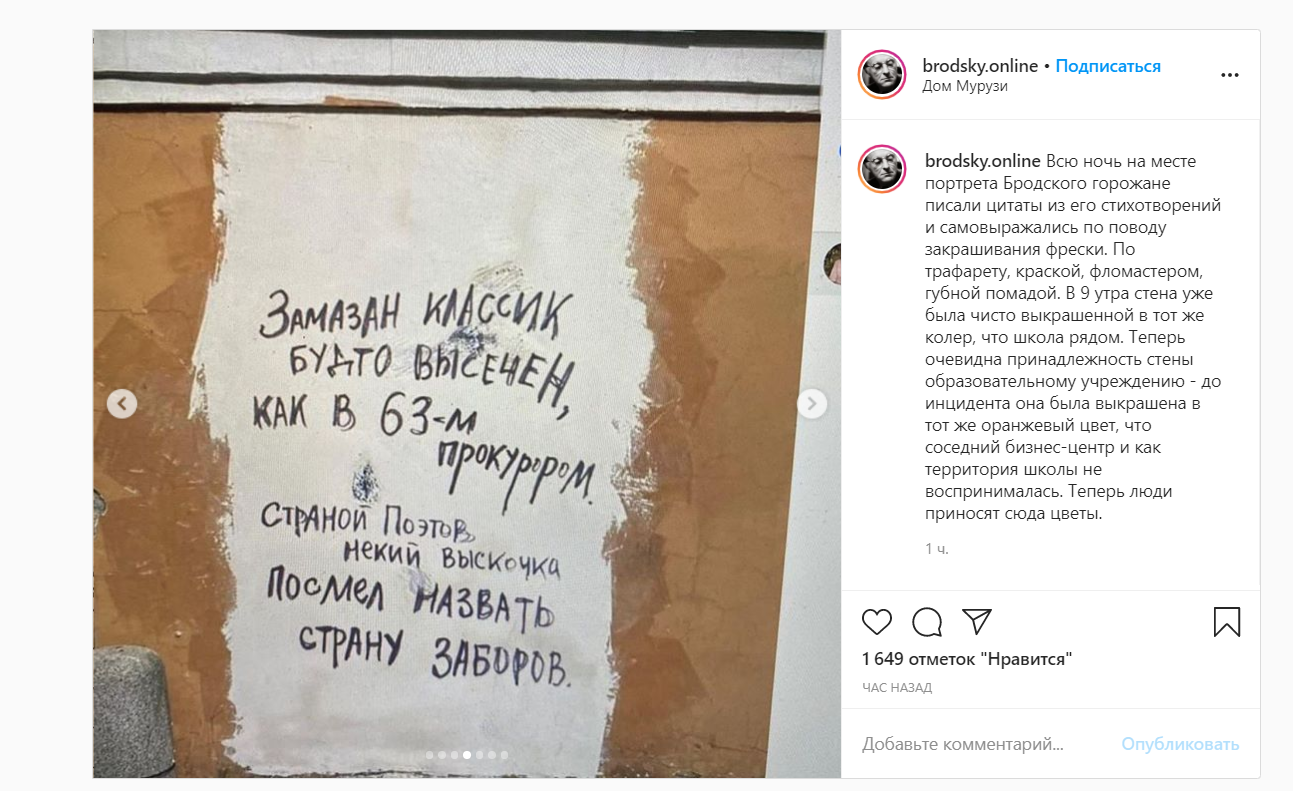 ЗАМАЗАН КЛАССИК
БУДТО ВЫСЕЧЕН,
КАК В 63-М
ПРОКУРОРОМ.
СТРАНОЙ ПОЭТОВ
НЕКИЙ ВЫСКОЧКА
ПОСМЕЛ НАЗВАТЬ
СТРАНУ ЗАБОРОВ.
brodsky.online • Подписаться
Дом Мурузи
brodsky.online Всю ночь на месте
портрета Бродского горожане
писали цитаты из его стихотворений
и самовыражались по поводу
закрашивания фрески. По
трафарету, краской, фломастером,
губной помадой. В 9 утра стена уже
была чисто выкрашенной в тот же
колер, что школа рядом. Теперь
очевидна принадлежность стены
образовательному учреждению - до
инцидента она была выкрашена в
тот же оранжевый цвет, что
соседний бизнес-центр и как
территория школы не
воспринималась. Теперь люди
приносят сюда цветы.
1 ч.
1 649 отметок "Нравится"
ЧАС НАЗАД
Добавьте комментарий...
Опубликовать